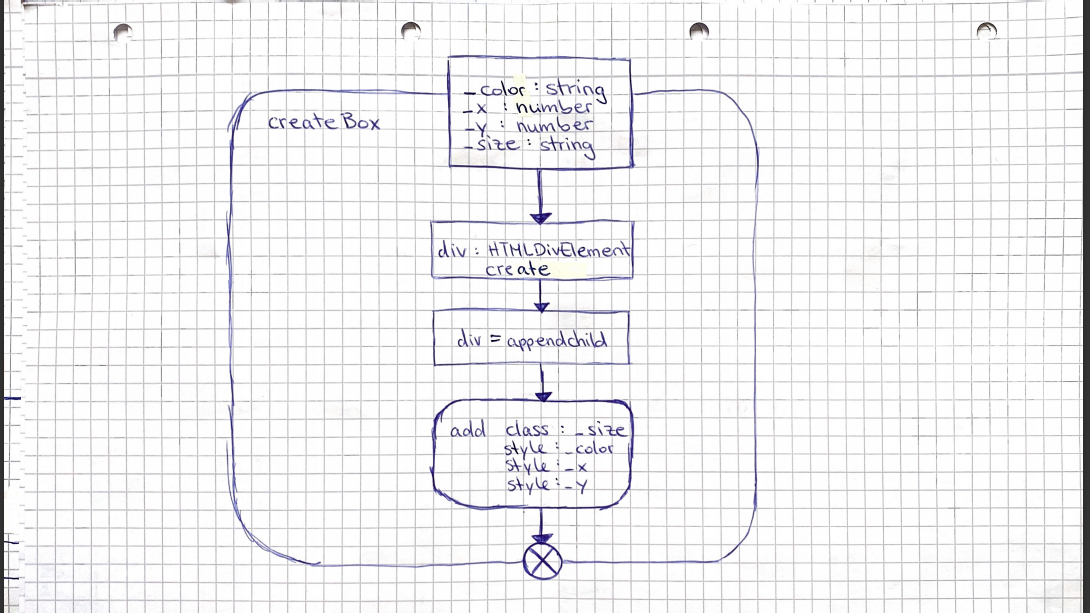 createBox
_color : string
_x : number
_y : number
_size : string
div : HTMLDivElement
create
div = appendchild
add class : _size
style : _color
style : _x
style : _y